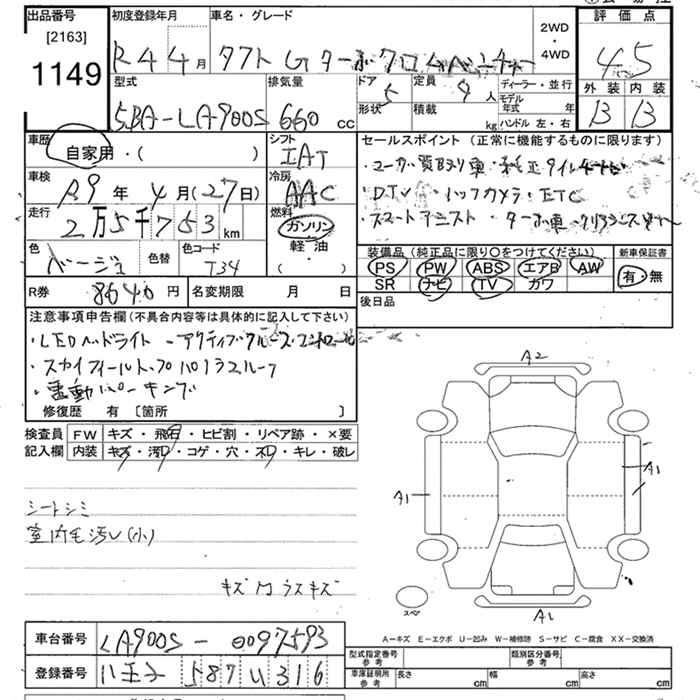 出品番号
[2163]
1149
初度登録年月
R4 4月
車名・グレード
タフト G ターボ クロムベンチャー
2WD
・
4WD
評価点
4.5
型式
5BA-LA900S
排気量
660 cc
ドア 5
形状
定員 4人
積載 kg
ディーラー・並行
モデル年式 年
ハンドル 左・右
外装 内装
B B
車歴
自家用・( )
シフト
IAT
セールスポイント(正常に機能するものに限ります)
・メーカー買取り車・純正
・DTV・バックカメラ・ETC
・スマートアシスト・ターボ車・クリアランスソナー
車検
R9年 4月(27日)
冷房
AAC
走行
2万5千753km
燃料
ガソリン
軽油
( )
色
ベージュ
色替
色コード
T34
装備品(純正品に限り○をつけてください)
PS PW ABS エアB AW
SR ナビ TV カワ
新車保証書
有・無
R券 8640円
名変期限 月 日
後日品
注意事項申告欄(不具合内容等は具体的に記入して下さい)
・LEDヘッドライト・アクティブクルーズコントロール
・スカイフィールトップパノラマルーフ
・電動パーキング
修復歴 有 [箇所 ]
検査員
記入欄
FW キズ・飛石・ヒビ割・リペア跡・×要
内装 キズ・汚れ・コゲ・穴・スレ・キレ・破レ
シートシミ
室内毛汚レ(小)
キズ Mガラスキズ
A2
A1
A1
A1
スペア
A-キズ E-エクボ U-凹み W-補修跡 S-サビ C-腐食 XX-交換済
車台番号 LA900S-0097593
登録番号 八王子 587 U 316
型式指定番号
参考
類別区分番号
参考
車庫証明用
参考
長さ cm
幅 cm
高さ cm